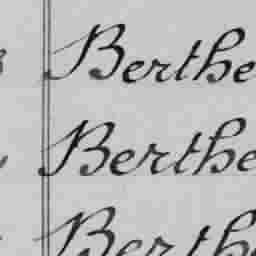 Berthe
Berthe
Berth